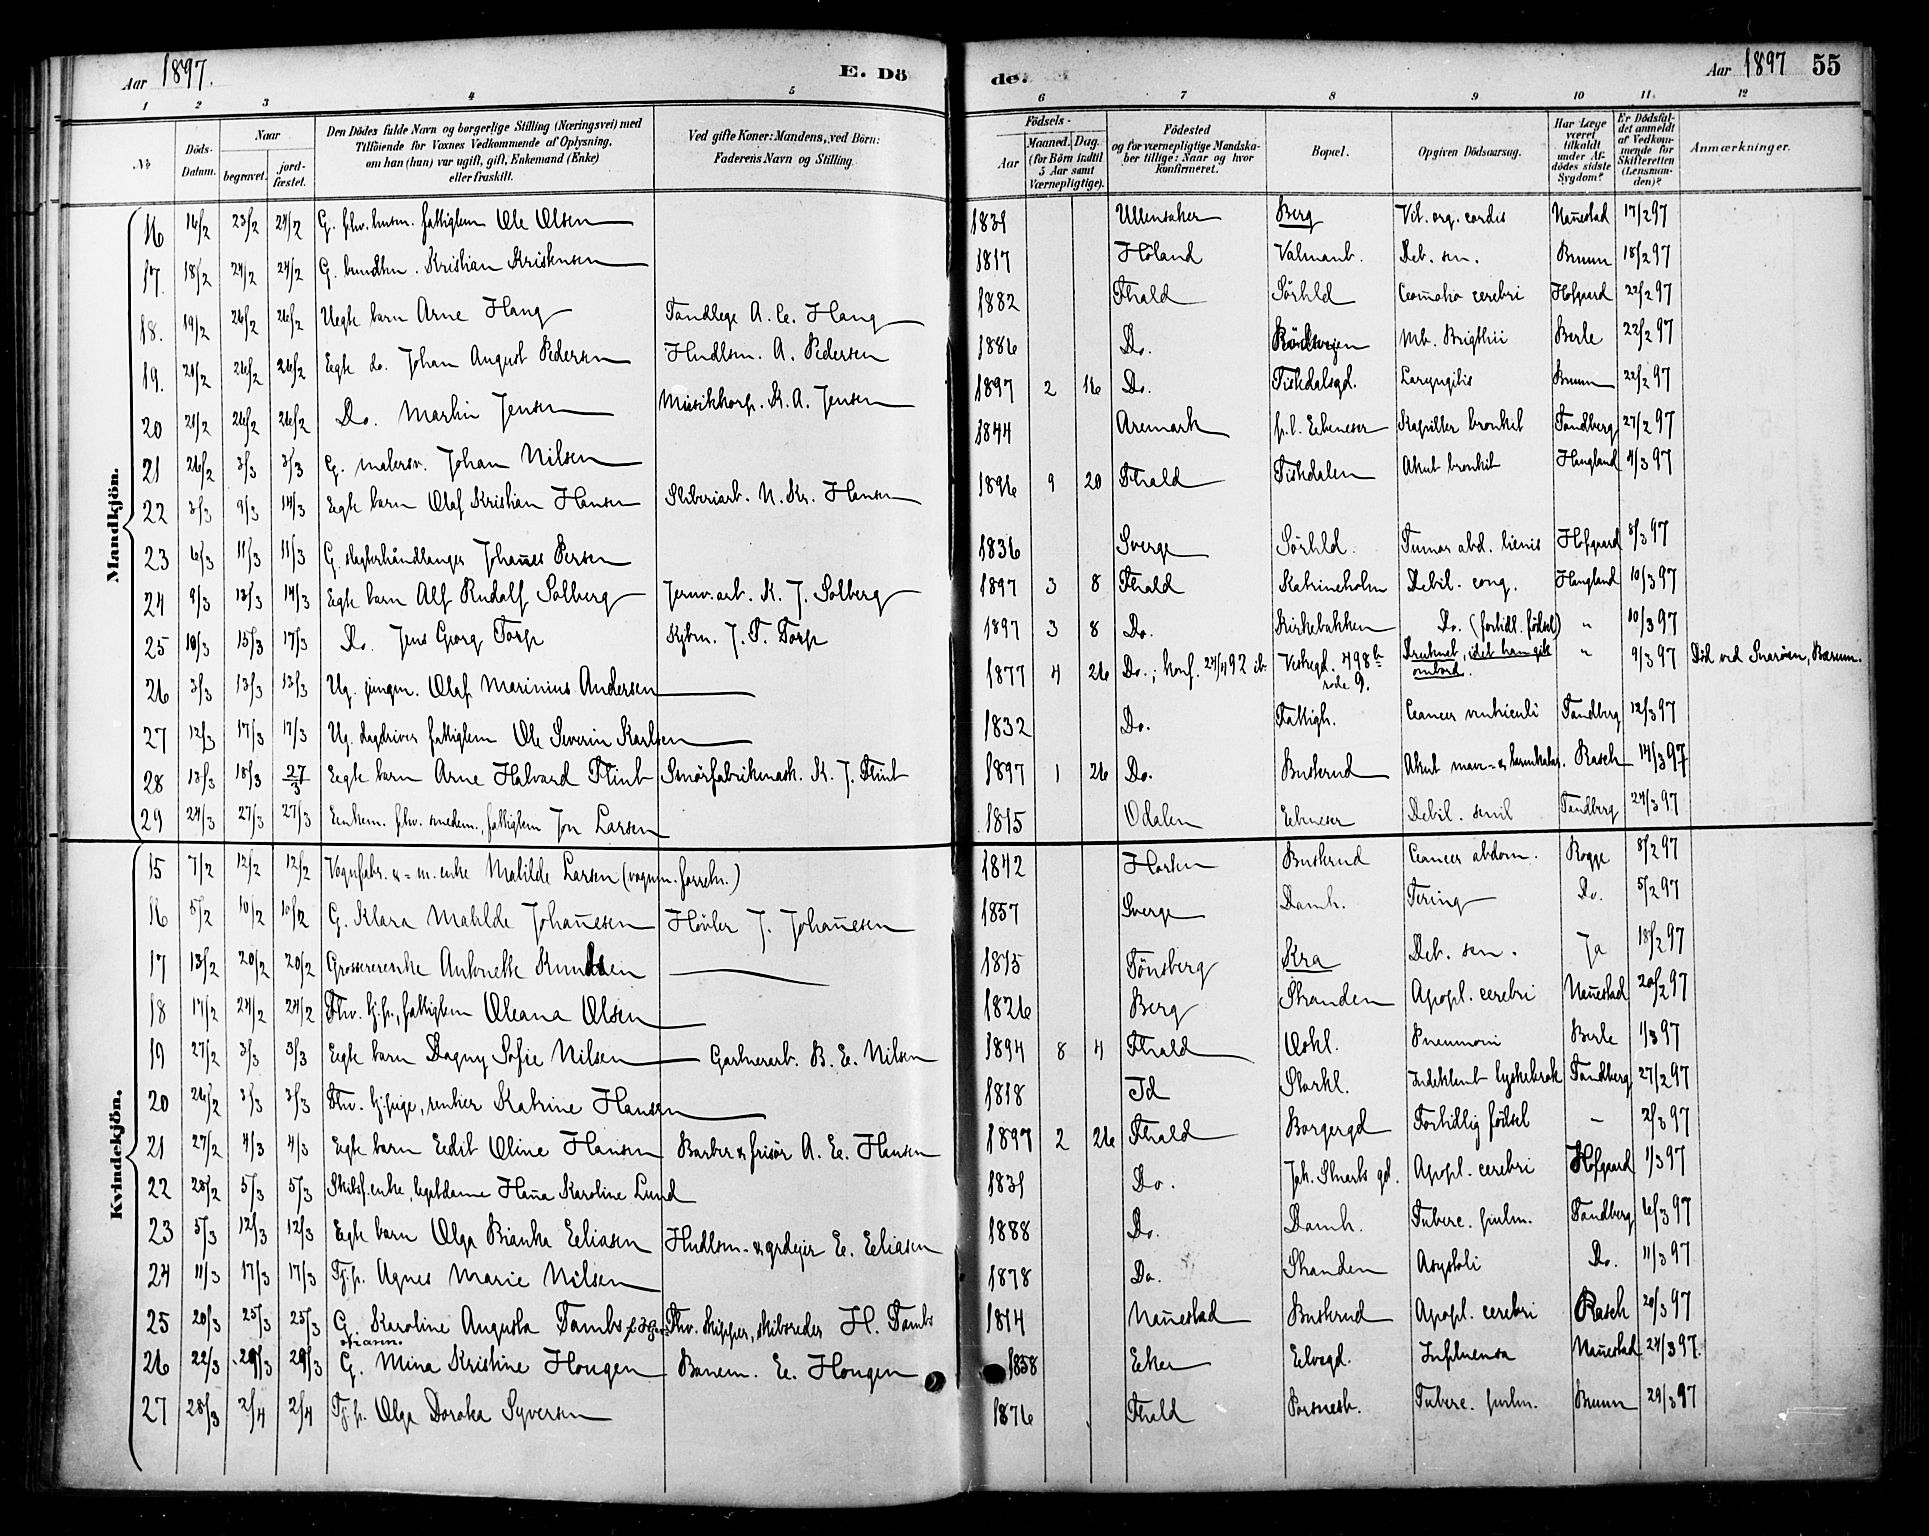 Aar 1897. E. Dö
de. Aar 1897 55
1 2 3 4 5 6 7 8 9 10 11 12
No Döds-Datum. Naar begravet. jord-fæstet. Den Dödes fulde Navn og borgerlige Stilling (Næringsvei) med Tilföiende for Voxnes Vedkommende af Oplysning, om han (hun) var ugift, gift, Enkemand (Enke) eller fraskilt. Ved gifte Koner: Mandens, ved Börn: Faderens Navn og Stilling. Födsels- Aar Maaned. Dag. (for Börn indtil 5 Aar samt Værnepligtige). Födested og for værnepligtige Mandskaber tillige: Naar og hvor konfirmeret. Bopæl. Opgiven Dödsaarsag. Har Læge været tilkaldt under Afdödes sidste Sygdom? Er Dödsfaldet anmeldt af Vedkommende for Skifteretten (Lensmanden)? Anmærkninger.
Mandkjön.
16 16/2 23/2 24/2 G. fhv. husm. fattiglem Ole Olsen 1839 Ullensaker Berg Vit. org. cordis Nannestad 17/2 97
17. 18/2 24/2 24/2 G. Kristian Kristensen 1817 Höland Deb. sen. Bruun 18/2 97
18. 19/2 26/2 26/2 Uegte barn Arne Haug Tandlege A. C. Haug 1882 Fhald Sörhld Comotio cerebri Hofgaard 22/2 97
19. 21/2 26/2 26/2 Egte do. Johan August Pedersen Hndlsm. A. Pedersen 1886 Do. Rödsvejen Mb. Brigthii Berle 22/2 97
20 21/2 26/2 26/2 Do. Martin Jensen Musikkorp. K. A. Jensen 1897 2 16 Do. Tistedalsgd. Laryngitis Bruun 22/2 97
21 26/2 3/3 3/3 G. malersv. Johan Nilsen 1844 Aremark Ebeneser Kapillær bronkit Tandberg 27/2 97
22 3/3 9/3 14/3 Egte barn Olaf Kristian Hansen Sliberiarb. N. Kr. Hansen 1896 9 20 Fhald Tistedalen Akut bronkit Haugland 4/3 97
23 6/3 11/3 11/3 G. slagterhåndlanger Johannes Persen 1836 Sverge Sörhld. Tumor abd. lienis Hofgaard 8/3 97
24 9/3 13/3 14/3 Egte barn Alf Rudolf Solberg Jernv.arb. K. J. Solberg 1897 3 8 Fhald Katrineholm Debil. cong. Haugland 10/3 97
25 10/3 15/3 17/3 Do. Jens Georg Torp Kjbm. J. T. Torp 1897 3 8 Do. Kirkebakken Do. (fortidl. födsel) " 10/3 97
26 3/3 13/3 13/3 Ug. jungm. Olaf Marinius Andersen 1877 4 26 Do.; konf. 24/4 92 ib. Vestregd. 498 b rode 9. Druknet, idet han gik ombord. " 9/3 97 Död ved Snaröen, Bærum.
27 12/3 17/3 17/3 Ug. dagdriver fattiglem Ole Severin Karlsen 1832 Do. Fattigh. Cancer ventriculi Tandberg 12/3 97
28 13/3 18/3 27/3 Egte barn Arne Halvard Flint Smörfabrikmask. K. J. Flint 1897 1 26 Do. Buskrud Akut mave- & tarmkatar. Rasch 14/3 97
29 24/3 27/3 27/3 Enkem. fhv. smedem., fattiglem Jon Larsen 1815 Odalen Ebeneser Debil. senil Tandberg 24/3 97
Kvindekjön.
15 7/2 12/2 12/2 Vognfabr. & =m. enke Matilde Larsen (vognm. forretn.) 1842 Horten Buskrud Cancer abdom. Rogge 8/2 97
16 5/2 10/2 10/2 G. Klara Matilde Johannesen Hövler J. Johannesen 1857 Sverge Damh. Tering Do. 5/2 97
17 13/2 20/2 20/2 Grossererenke Antonette Knudsen 1815 Tönsberg Kra Deb. sen. Ja 18/2 97
18 17/2 24/2 24/2 Fhv. tj.p., fattiglem Oleana Olsen 1826 Berg Stranden Apopl. cerebri Nannestad 20/2 97
19 27/2 3/3 3/3 Egte barn Dagny Sofie Nilsen Gartnerarb. B. E. Nilsen 1894 8 4 Fhald Oskl. Pneumoni Berle 1/3 97
20 26/2 3/3 3/3 Fhv. tj.pige, rentier Katrine Hansen 1818 Id Storkl. Indeklemt lyskebrok Tandberg 27/2 97
21 27/2 4/3 4/3 Egte barn Edit Oline Hansen Barber & frisör A. E. Hansen 1897 2 26 Fhald Borgergd Fortidlig födsel — 2/3 97
22 28/2 5/3 5/3 Skibsf.enke, legatdame Hanna Karoline Lund 1839 Do. Joh. Stuarts gd. Apopl. cerebri Hofgaard 1/3 97
23 5/3 12/3 12/3 Egte barn Olga Bianka Eliasen Hndlsm- & grdejer E. Eliasen 1888 Do. Damh. Tuberc. pulm. Tandberg 6/3 97
24 11/3 17/3 17/3 Tj.p. Agnes Marie Nilsen 1878 Do. Stranden Asystoli Do. 11/3 97
25 20/3 25/3 25/3 G. Karoline Augusta Tambs Fhv. skipper, skibsreder H. Tambs 1814 Nannestad Buskrud Apopl. cerebri Rasch 20/3 97
26 22/3 29/3 29/3 G. Mina Kristine Hougen Banem. E. Hougen 1858 Eker Elvegd. Influensa Nannestad 24/3 97.
27 28/3 2/4 2/4 Tj.p. Olga Dorotea Syversen 1876 Fhald Porsnesk. Tuberc. pulm. Bruun 29/3 97